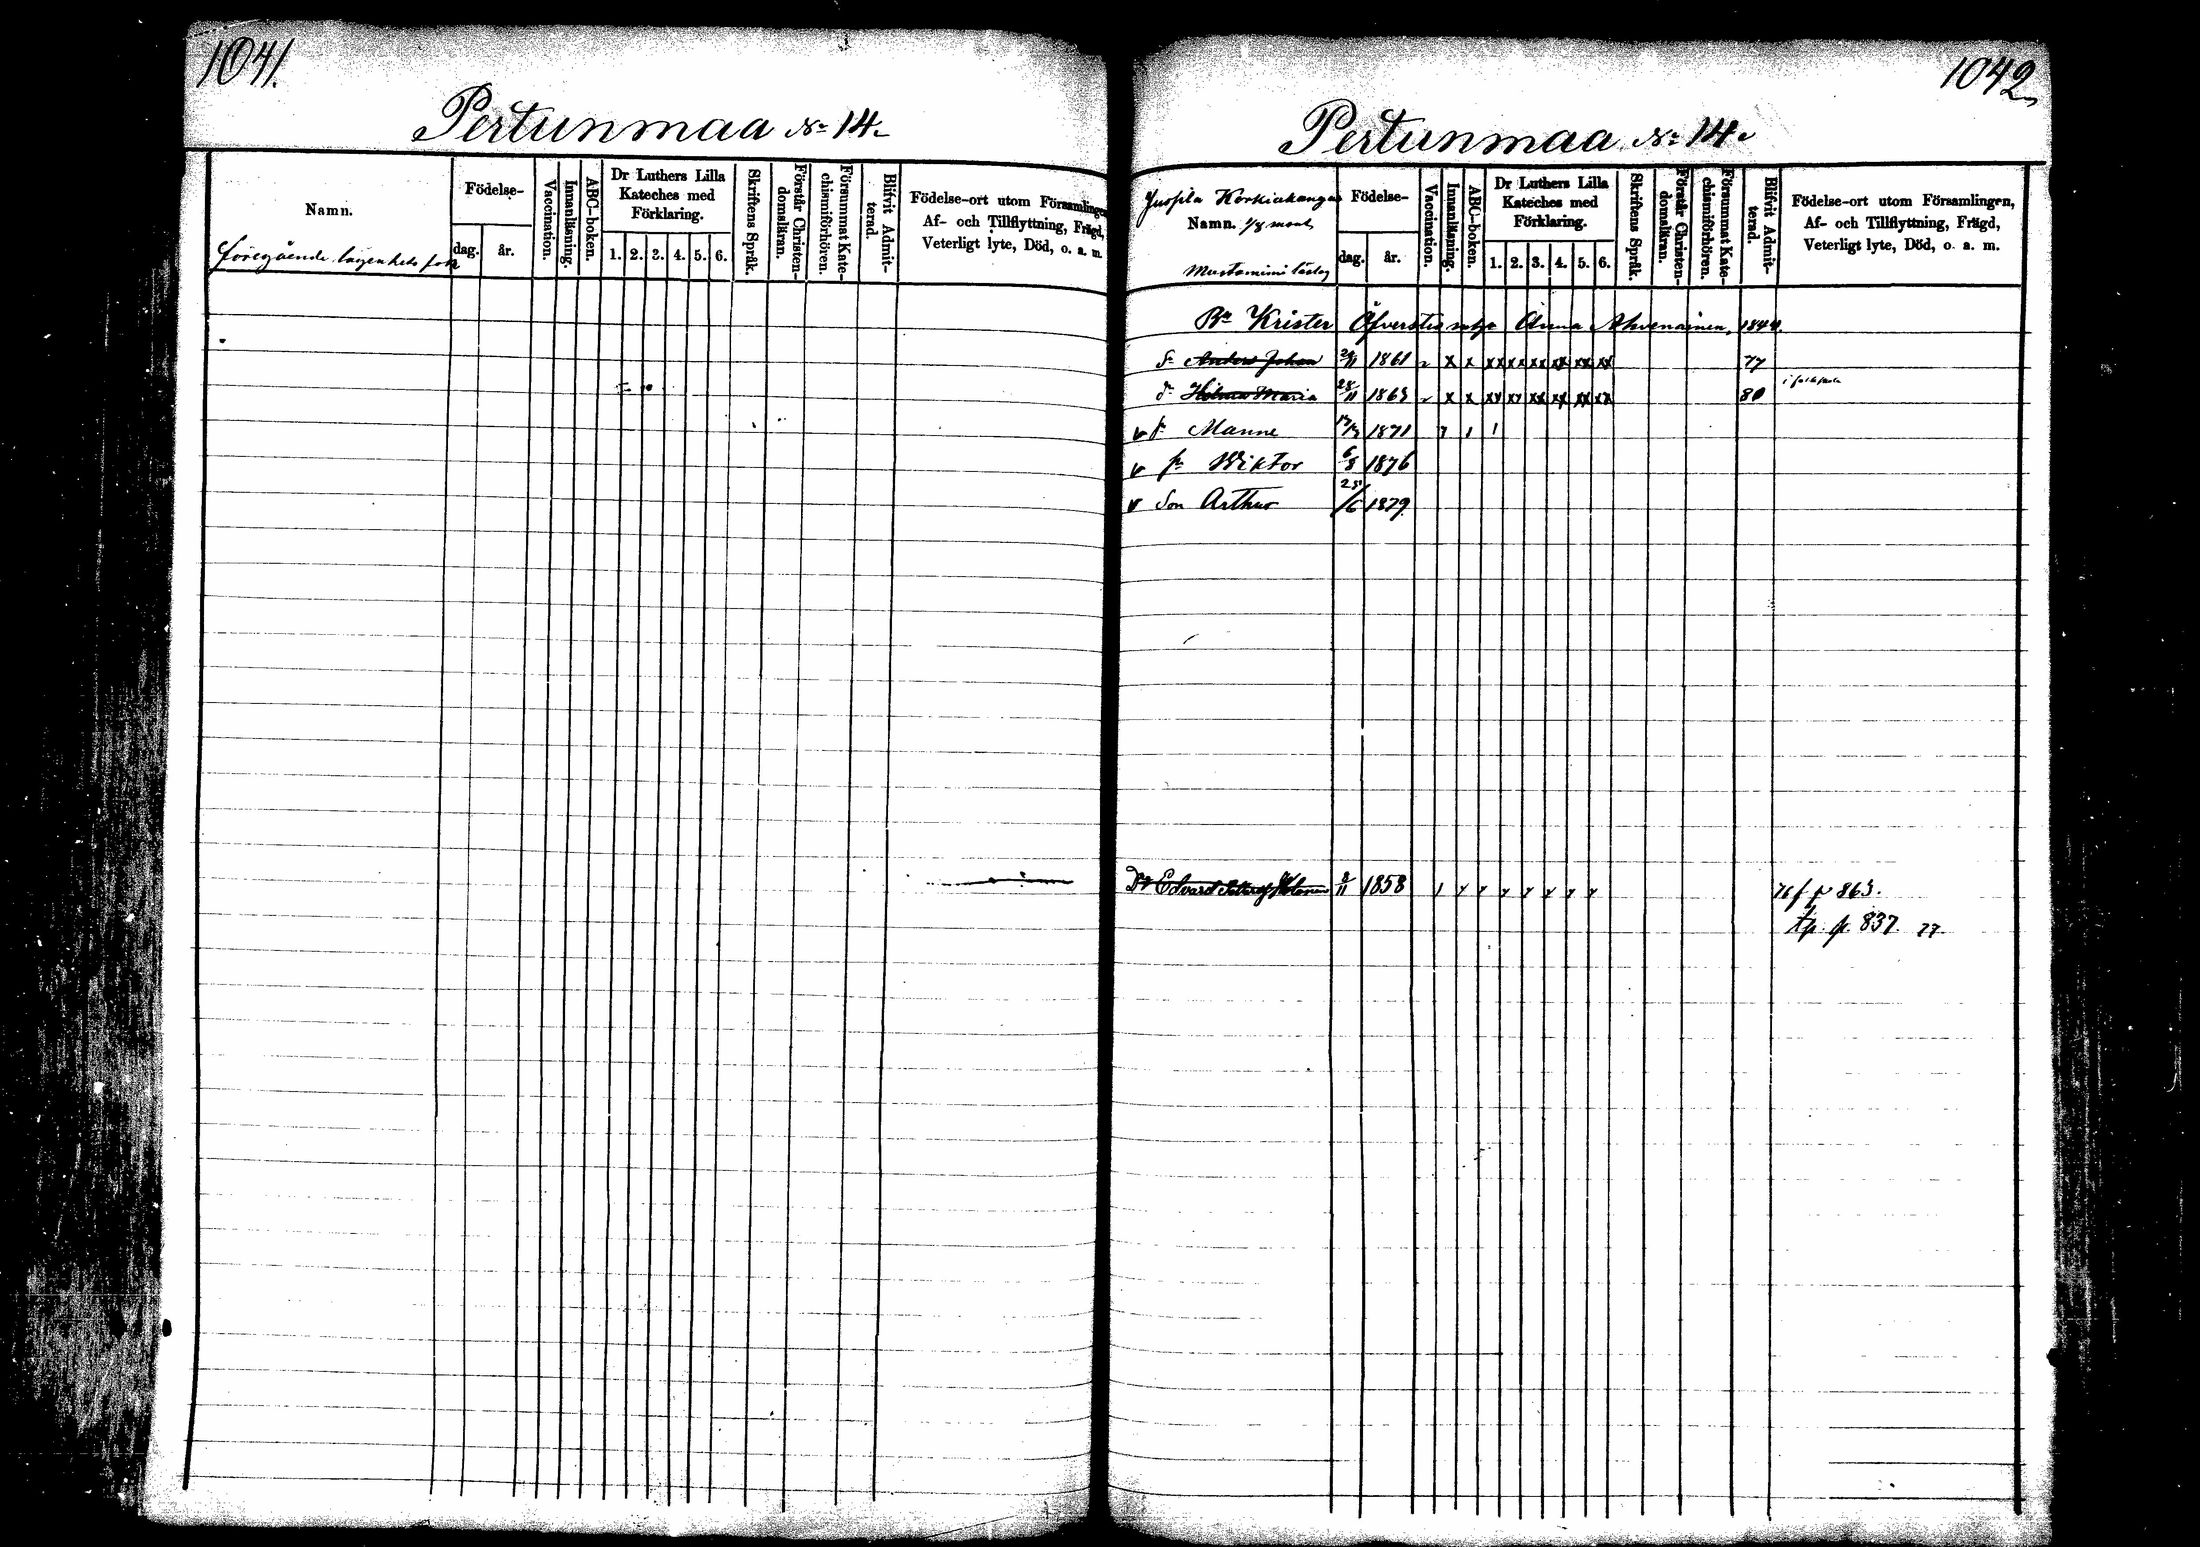 1041.
Pertunmaa No 14.
Namn.
Födelse-
dag. år.
Vaccination.
Innanläsning.
ABC-boken.
Dr Luthers Lilla
Kateches med
Förklaring.
1. 2. 3. 4. 5. 6.
Skriftens Språk.
Förstår Christen-
domsläran.
Försummat Kate-
chismiförhören.
Blifvit Admit-
terad.
Födelse-ort utom Församlingen,
Af- och Tillflyttning, Frägd,
Veterligt lyte, Död, o. a. m.
föregående lägenhets folk
1042
Pertunmaa No 14.
Juspila Korkiakangas
Namn. 1/8 mant
Födelse-
dag. år.
Vaccination.
Innanläsning.
ABC-boken.
Dr Luthers Lilla
Kateches med
Förklaring.
1. 2. 3. 4. 5. 6.
Skriftens Språk.
Förstår Christen-
domsläran.
Försummat Kate-
chismiförhören.
Blifvit Admit-
terad.
Födelse-ort utom Församlingen,
Af- och Tillflyttning, Frägd,
Veterligt lyte, Död, o. a. m.
Bn Krister Öfverstes Anna Ahvenainen, 1844.
Sn Anders Johan 1861 x x xx xx xx xx xx xx 77
dr Maria 28/11 1863 x x xx xx xx xx xx xx 80
v sn Manne 1871
v sn Wiktor 6/8 1876
v Son Arthur 25/6 1879
Dr Edvard 2/11 1858 76 f p 863.
p. 837. 77.